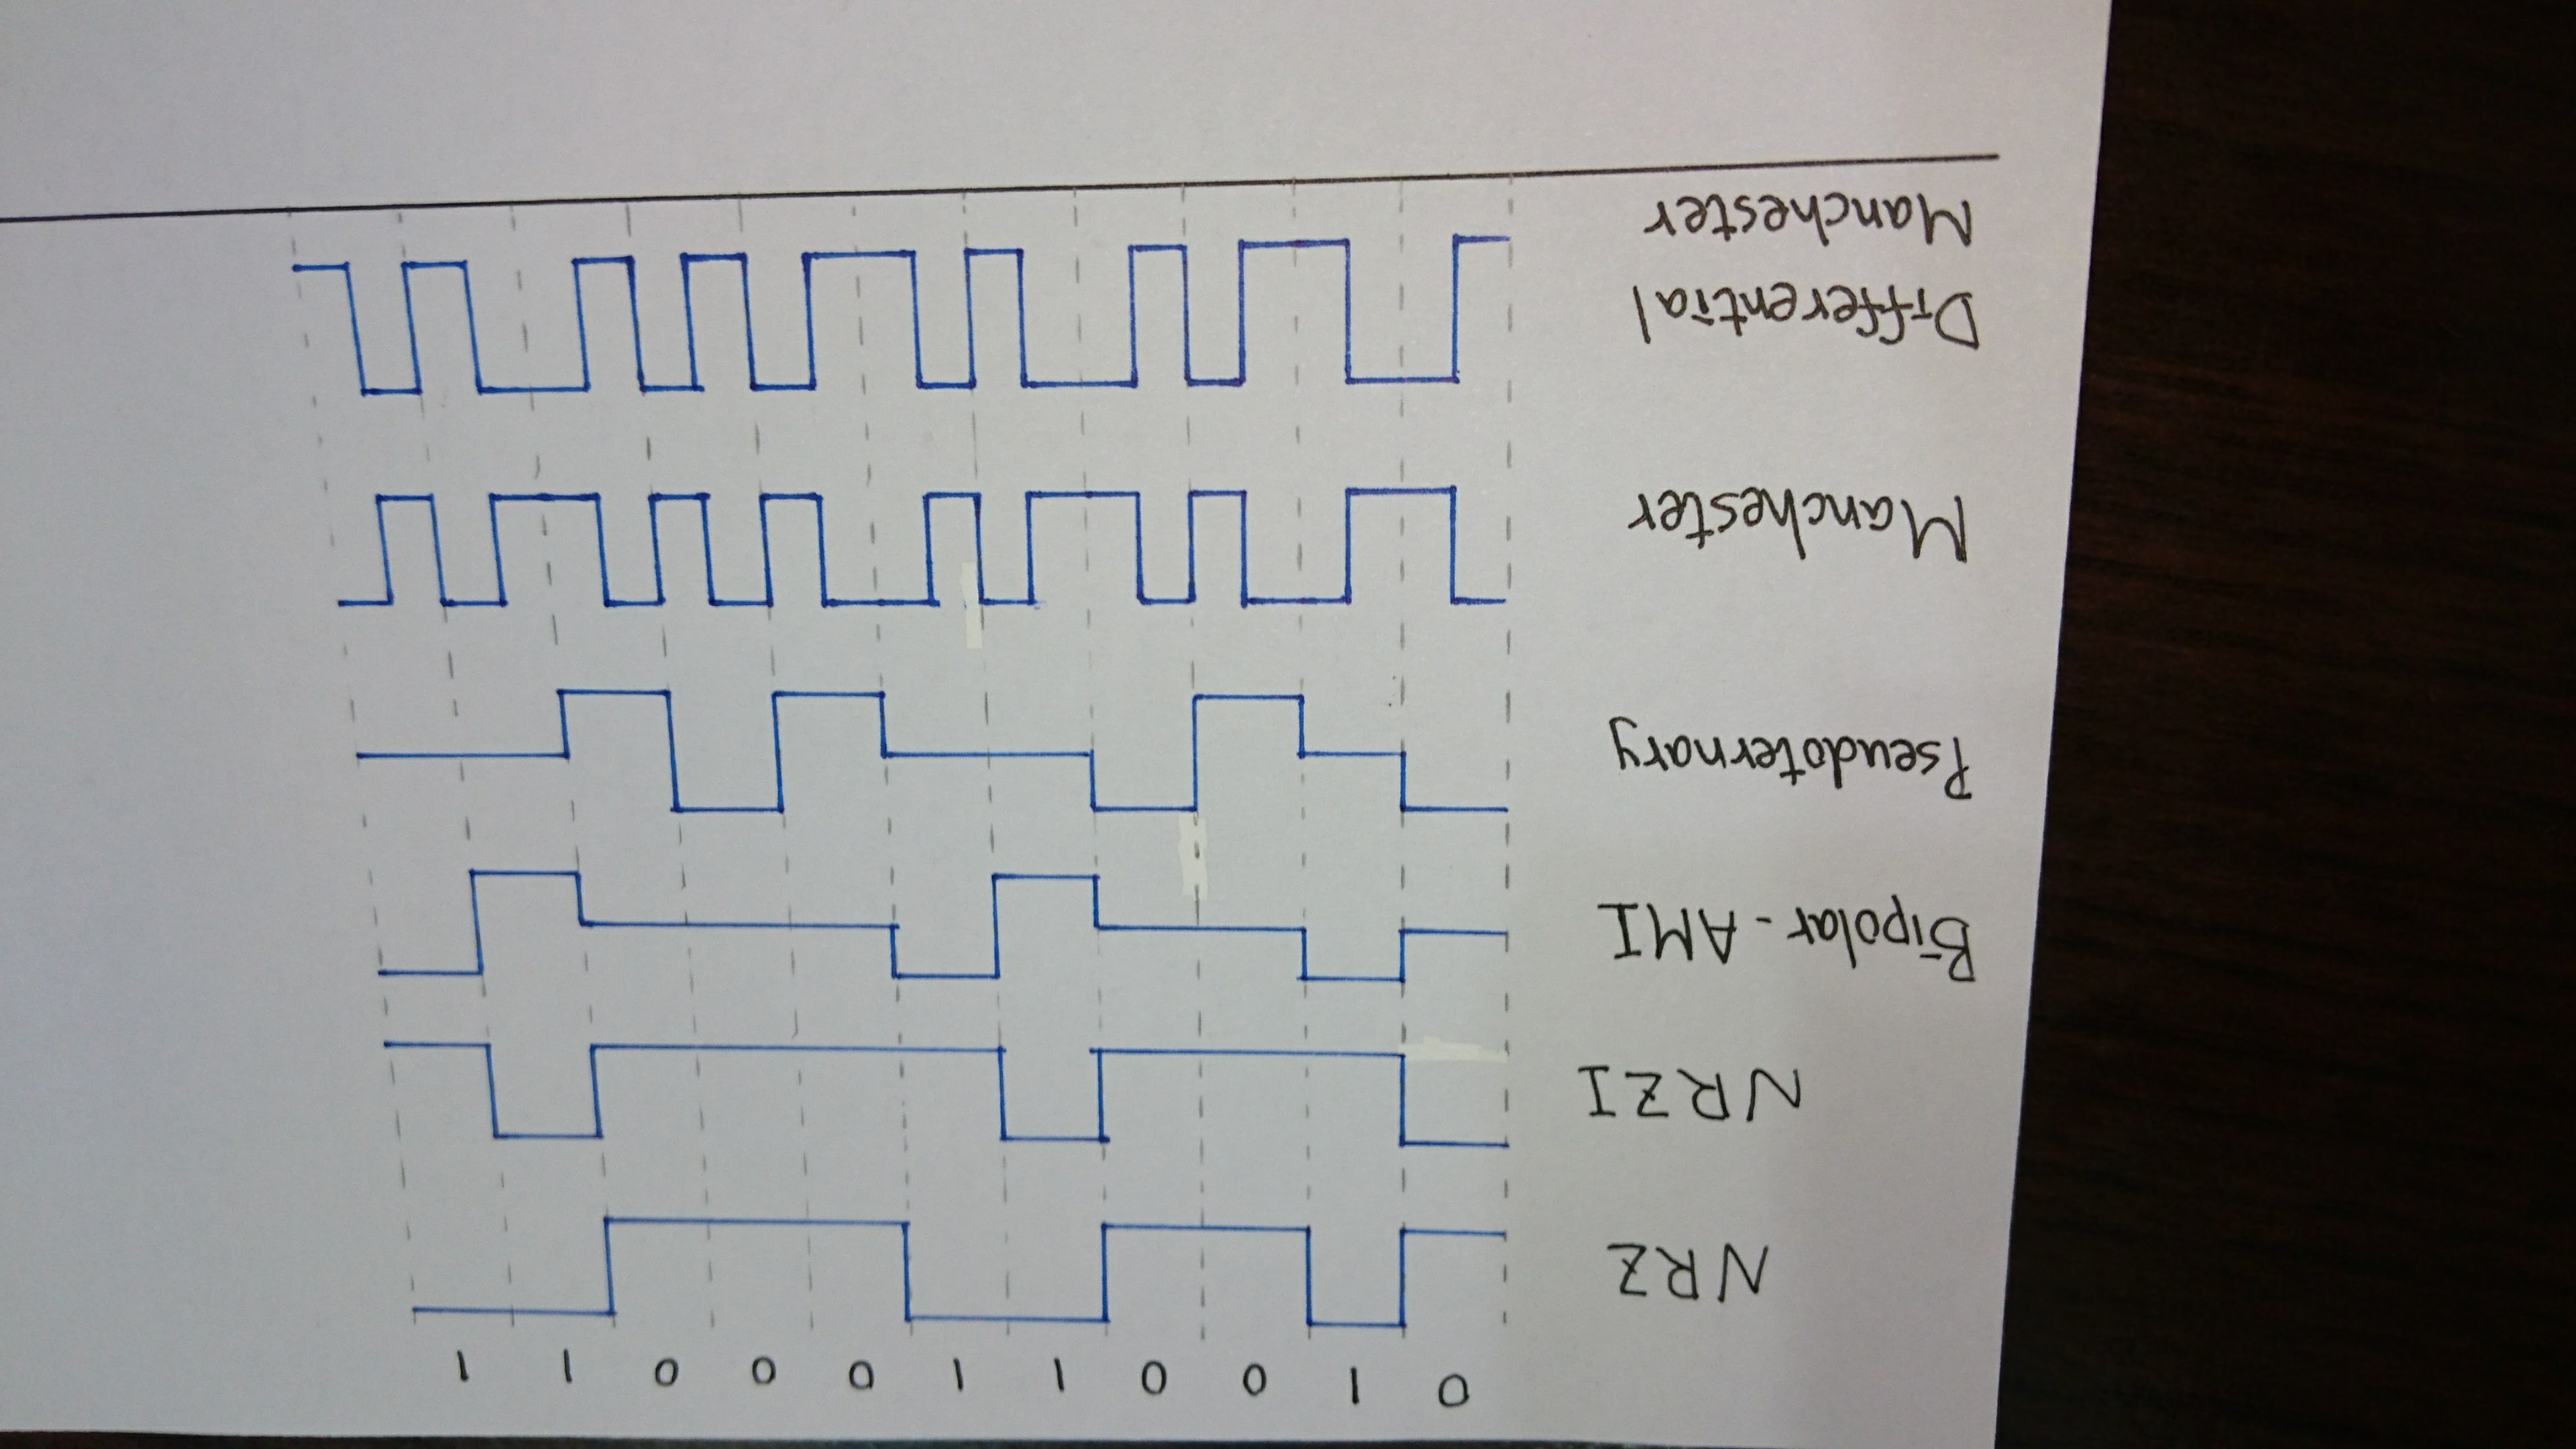 0 1 0 0 1 1 0 0 0 1 1
NRZ
NRZI
Bipolar-AMI
Pseudoternary
Manchester
Differential
Manchester